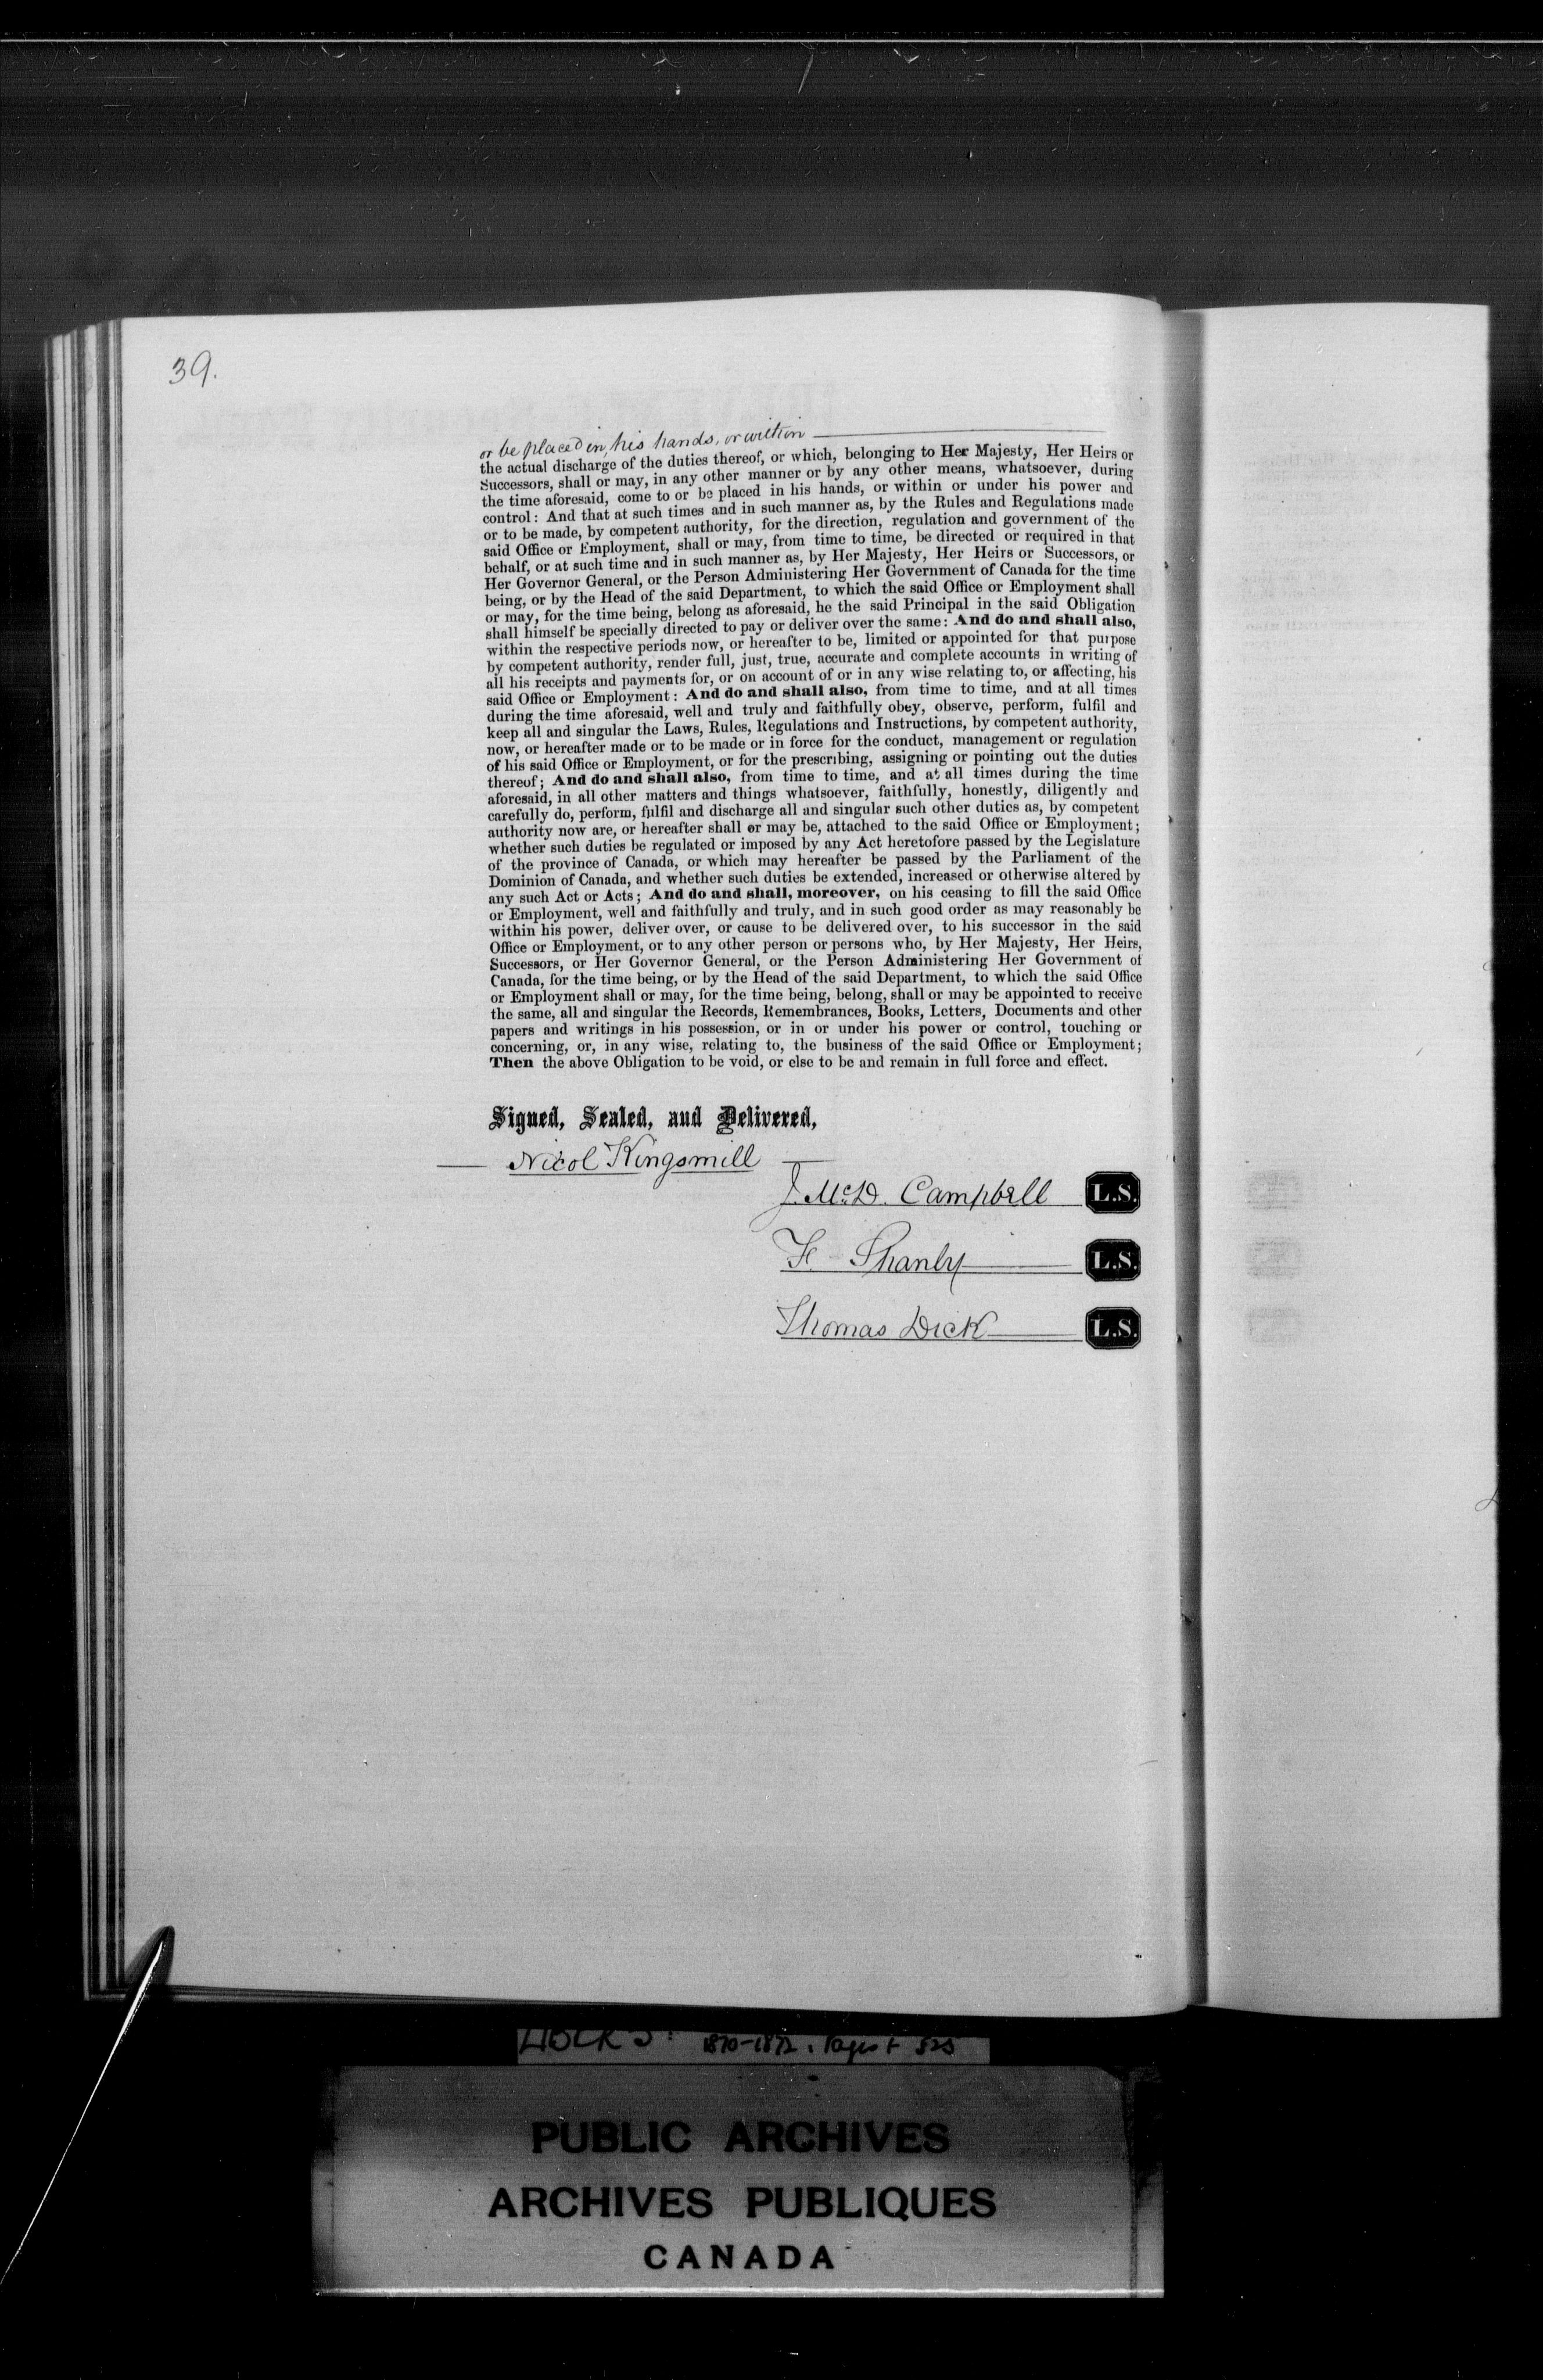 39.
or be placed in his hands, or within
the actual discharge of the duties thereof, or which, belonging to Her Majesty, Her Heirs or
Successors, shall or may, in any other manner or by any other means, whatsoever, during
the time aforesaid, come to or be placed in his hands, or within or under his power and
control: And that at such times and in such manner as, by the Rules and Regulations made
or to be made, by competent authority, for the direction, regulation and government of the
said Office or Employment, shall or may, from time to time, be directed or required in that
behalf, or at such time and in such manner as, by Her Majesty, Her Heirs or Successors, or
Her Governor General, or the Person Administering Her Government of Canada for the time
being, or by the Head of the said Department, to which the said Office or Employment shall
or may, for the time being, belong as aforesaid, he the said Principal in the said Obligation
shall himself be specially directed to pay or deliver over the same: And do and shall also,
within the respective periods now, or hereafter to be, limited or appointed for that purpose
by competent authority, render full, just, true, accurate and complete accounts in writing of
all his receipts and payments for, or on account of or in any wise relating to, or affecting, his
said Office or Employment: And do and shall also, from time to time, and at all times
during the time aforesaid, well and truly and faithfully obey, observe, perform, fulfil and
keep all and singular the Laws, Rules, Regulations and Instructions, by competent authority,
now, or hereafter made or to be made or in force for the conduct, management or regulation
of his said Office or Employment, or for the prescribing, assigning or pointing out the duties
thereof; And do and shall also, from time to time, and at all times during the time
aforesaid, in all other matters and things whatsoever, faithfully, honestly, diligently and
carefully do, perform, fulfil and discharge all and singular such other duties as, by competent
authority now are, or hereafter shall or may be, attached to the said Office or Employment;
whether such duties be regulated or imposed by any Act heretofore passed by the Legislature
of the province of Canada, or which may hereafter be passed by the Parliament of the
Dominion of Canada, and whether such duties be extended, increased or otherwise altered by
any such Act or Acts; And do and shall, moreover, on his ceasing to fill the said Office
or Employment, well and faithfully and truly, and in such good order as may reasonably be
within his power, deliver over, or cause to be delivered over, to his successor in the said
Office or Employment, or to any other person or persons who, by Her Majesty, Her Heirs,
Successors, or Her Governor General, or the Person Administering Her Government of
Canada, for the time being, or by the Head of the said Department, to which the said Office
or Employment shall or may, for the time being, belong, shall or may be appointed to receive
the same, all and singular the Records, Remembrances, Books, Letters, Documents and other
papers and writings in his possession, or in or under his power or control, touching or
concerning, or, in any wise, relating to, the business of the said Office or Employment;
Then the above Obligation to be void, or else to be and remain in full force and effect.
Signed, Sealed, and Delivered,
Nicol Kingsmill
J. McD. Campbell L.S.
F. Shanly L.S.
Thomas Dick L.S.
1870-1872
PUBLIC ARCHIVES
ARCHIVES PUBLIQUES
CANADA